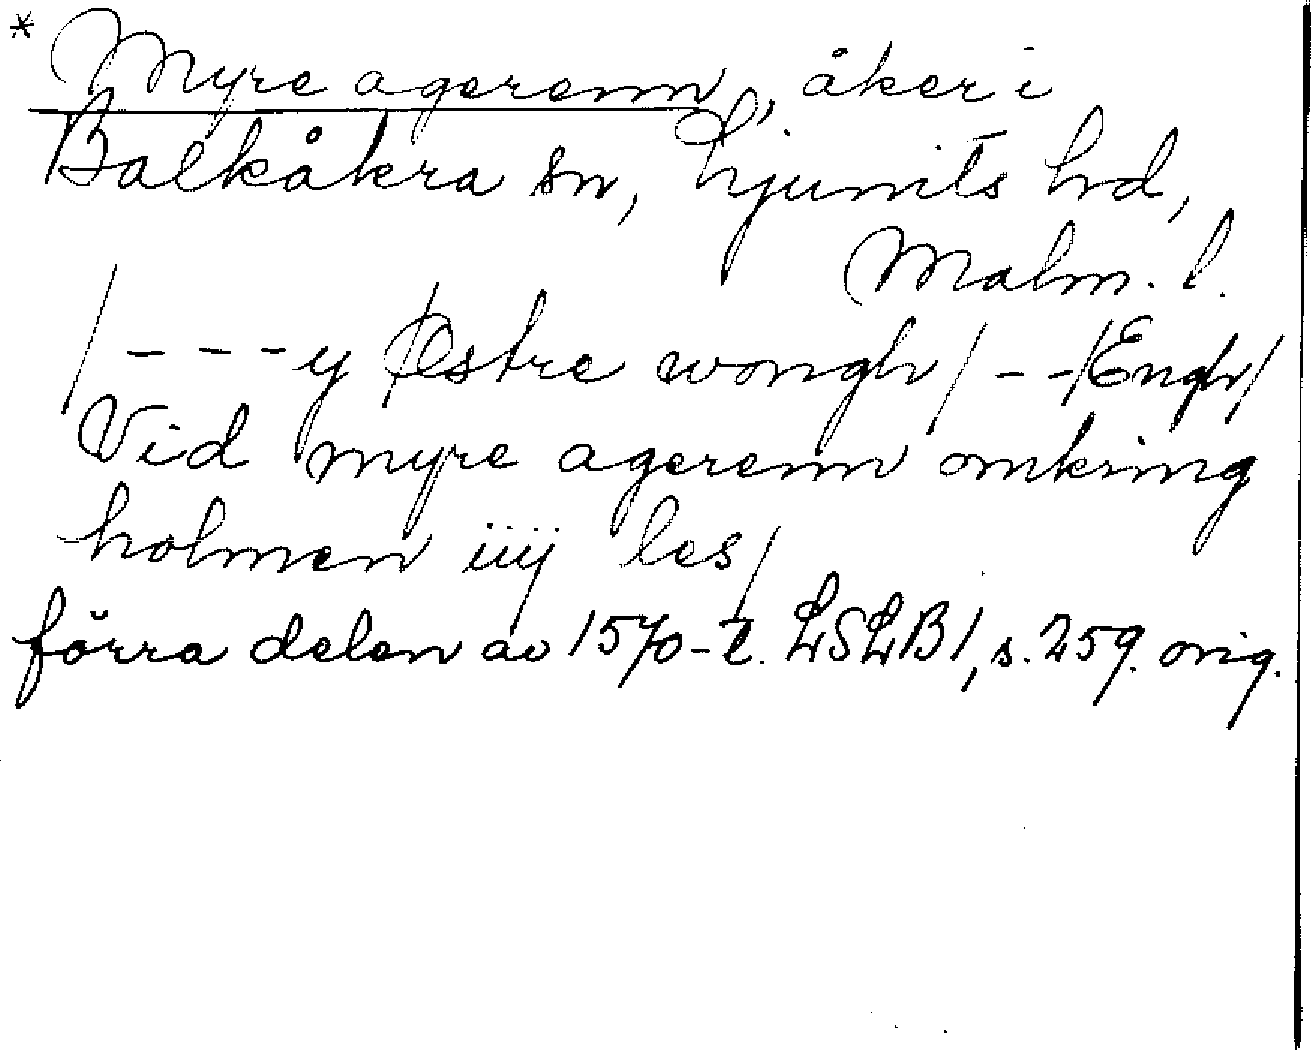 * Myre agerenn, åker i
Balkåkra sn, Ljunits hd,
Malm. l.
/ - - - y Østre wongh / - - /Engh/
Vid myre agerenn omkring
holmen iiij les/
förra delen av 1570-t. LSLB1, s. 259. orig.